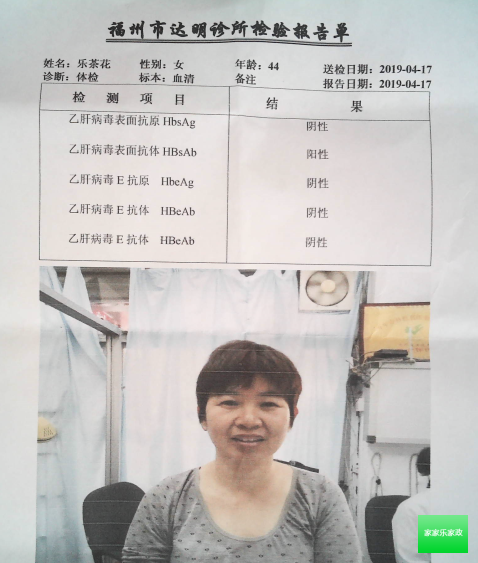 福州市达明诊所检验报告单
姓名：乐茶花 性别：女 年龄：44 送检日期：2019-04-17
诊断：体检 标本：血清 备注 报告日期：2019-04-17
检 测 项 目 结 果
乙肝病毒表面抗原 HbsAg 阴性
乙肝病毒表面抗体 HBsAb 阳性
乙肝病毒 E 抗原 HbeAg 阴性
乙肝病毒 E 抗体 HBeAb 阴性
乙肝病毒 E 抗体 HBeAb 阴性
家家乐家政